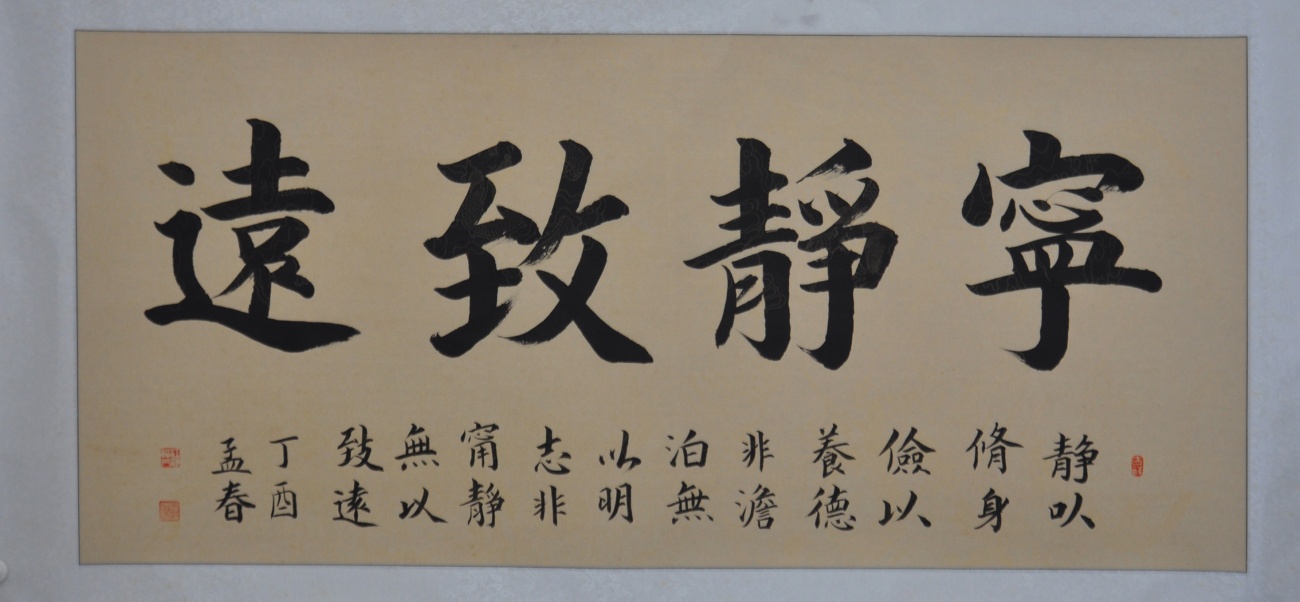 寧靜致遠
靜以
脩身
儉以
養德
非澹
泊無
以明
志非
甯靜
無以
致遠
丁酉
孟春